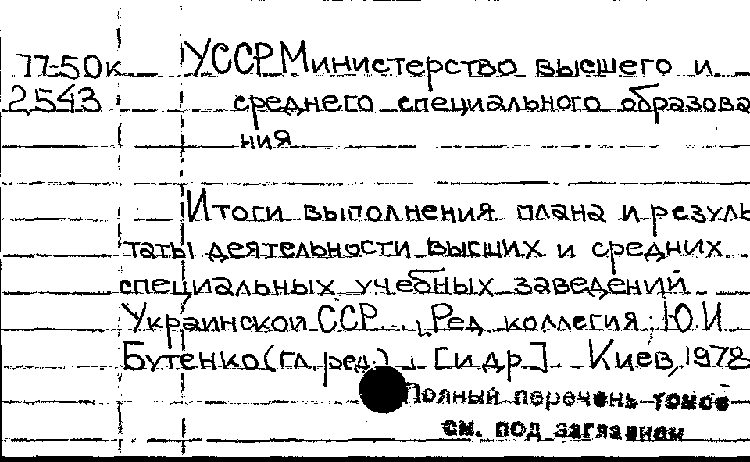 П-50к УССР Министерство высшего и
2543 среднего специального образова
ния
Итоги выполнения плана и резуль
таты деятельности высших и средних
специальных учебных заведений
Украинской ССР... Ред. коллегия: Ю.И.
Бутенко (гл. ред.) [и др.] Киев, 1978
Полный перечень томов
см. под заглавием